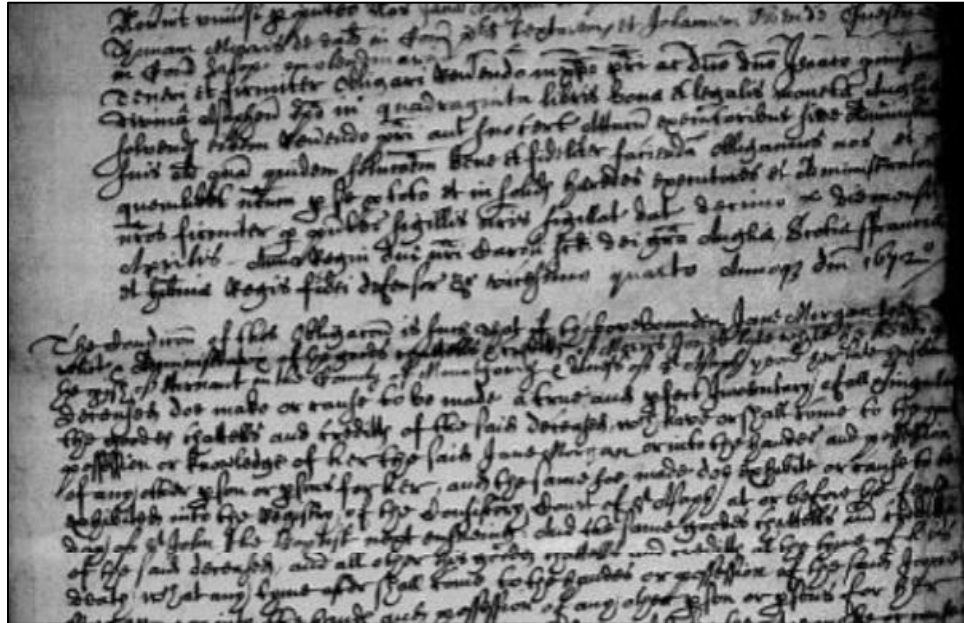 Noverint universi p pntes nos Jane Morgan
Thomam Morris de ead in Com pd et Johannem
in Com Salop
Teneri et firmiter Obligari Reverendo in xpo pri ac Dno Dno Isaaco
divina Asaphen Epo in quadraginta libris bone et legalis monete Anglie
solvend eidem Reverendo pri aut suo cert Atturn executoribus sive Administr
suis Ad qua quidem soluconem bene et fideliter faciend Obligamus nos et
quemlibet nrum p se p toto et in solid heredes executores et Administratores
nros firmiter p pntes sigillis nris sigillat dat decimo die mensis
Aprilis Anno Regni Dni nri Caroli scdi dei gra Anglie Scotie ffrancie
et hibnie Regis fidei defensor &c vicesimo quarto Annoq Dni 1672
The Condicon of this Obligacon is such that if the above bounden Jane Morgan
Administratrix of the goods chattells & creditts of Morris
of in the County of Montgomery & dioces of St Asaph
deceased doe make or cause to be made a true and pfect Inventory of all & singular
the goodes chattells and creditts of the said deceased, wch have or shall come to the
possession or knowledge of her the said Jane Morgan or into the handes and possession
of any other pson or psons for her, and the same soe made doe exhibite or cause to be
exhibited into the Registry of the Consistory Court of St Asaph at or before the feast
day of St John the Baptist next ensueing And the same goodes chattells and creditts
of the said deceased, and all other his goodes chattells and creditts at the tyme of his
death, wch at any tyme after shall come to the handes or possession of the said Jane
the hands and possession of any other pson or psons for her